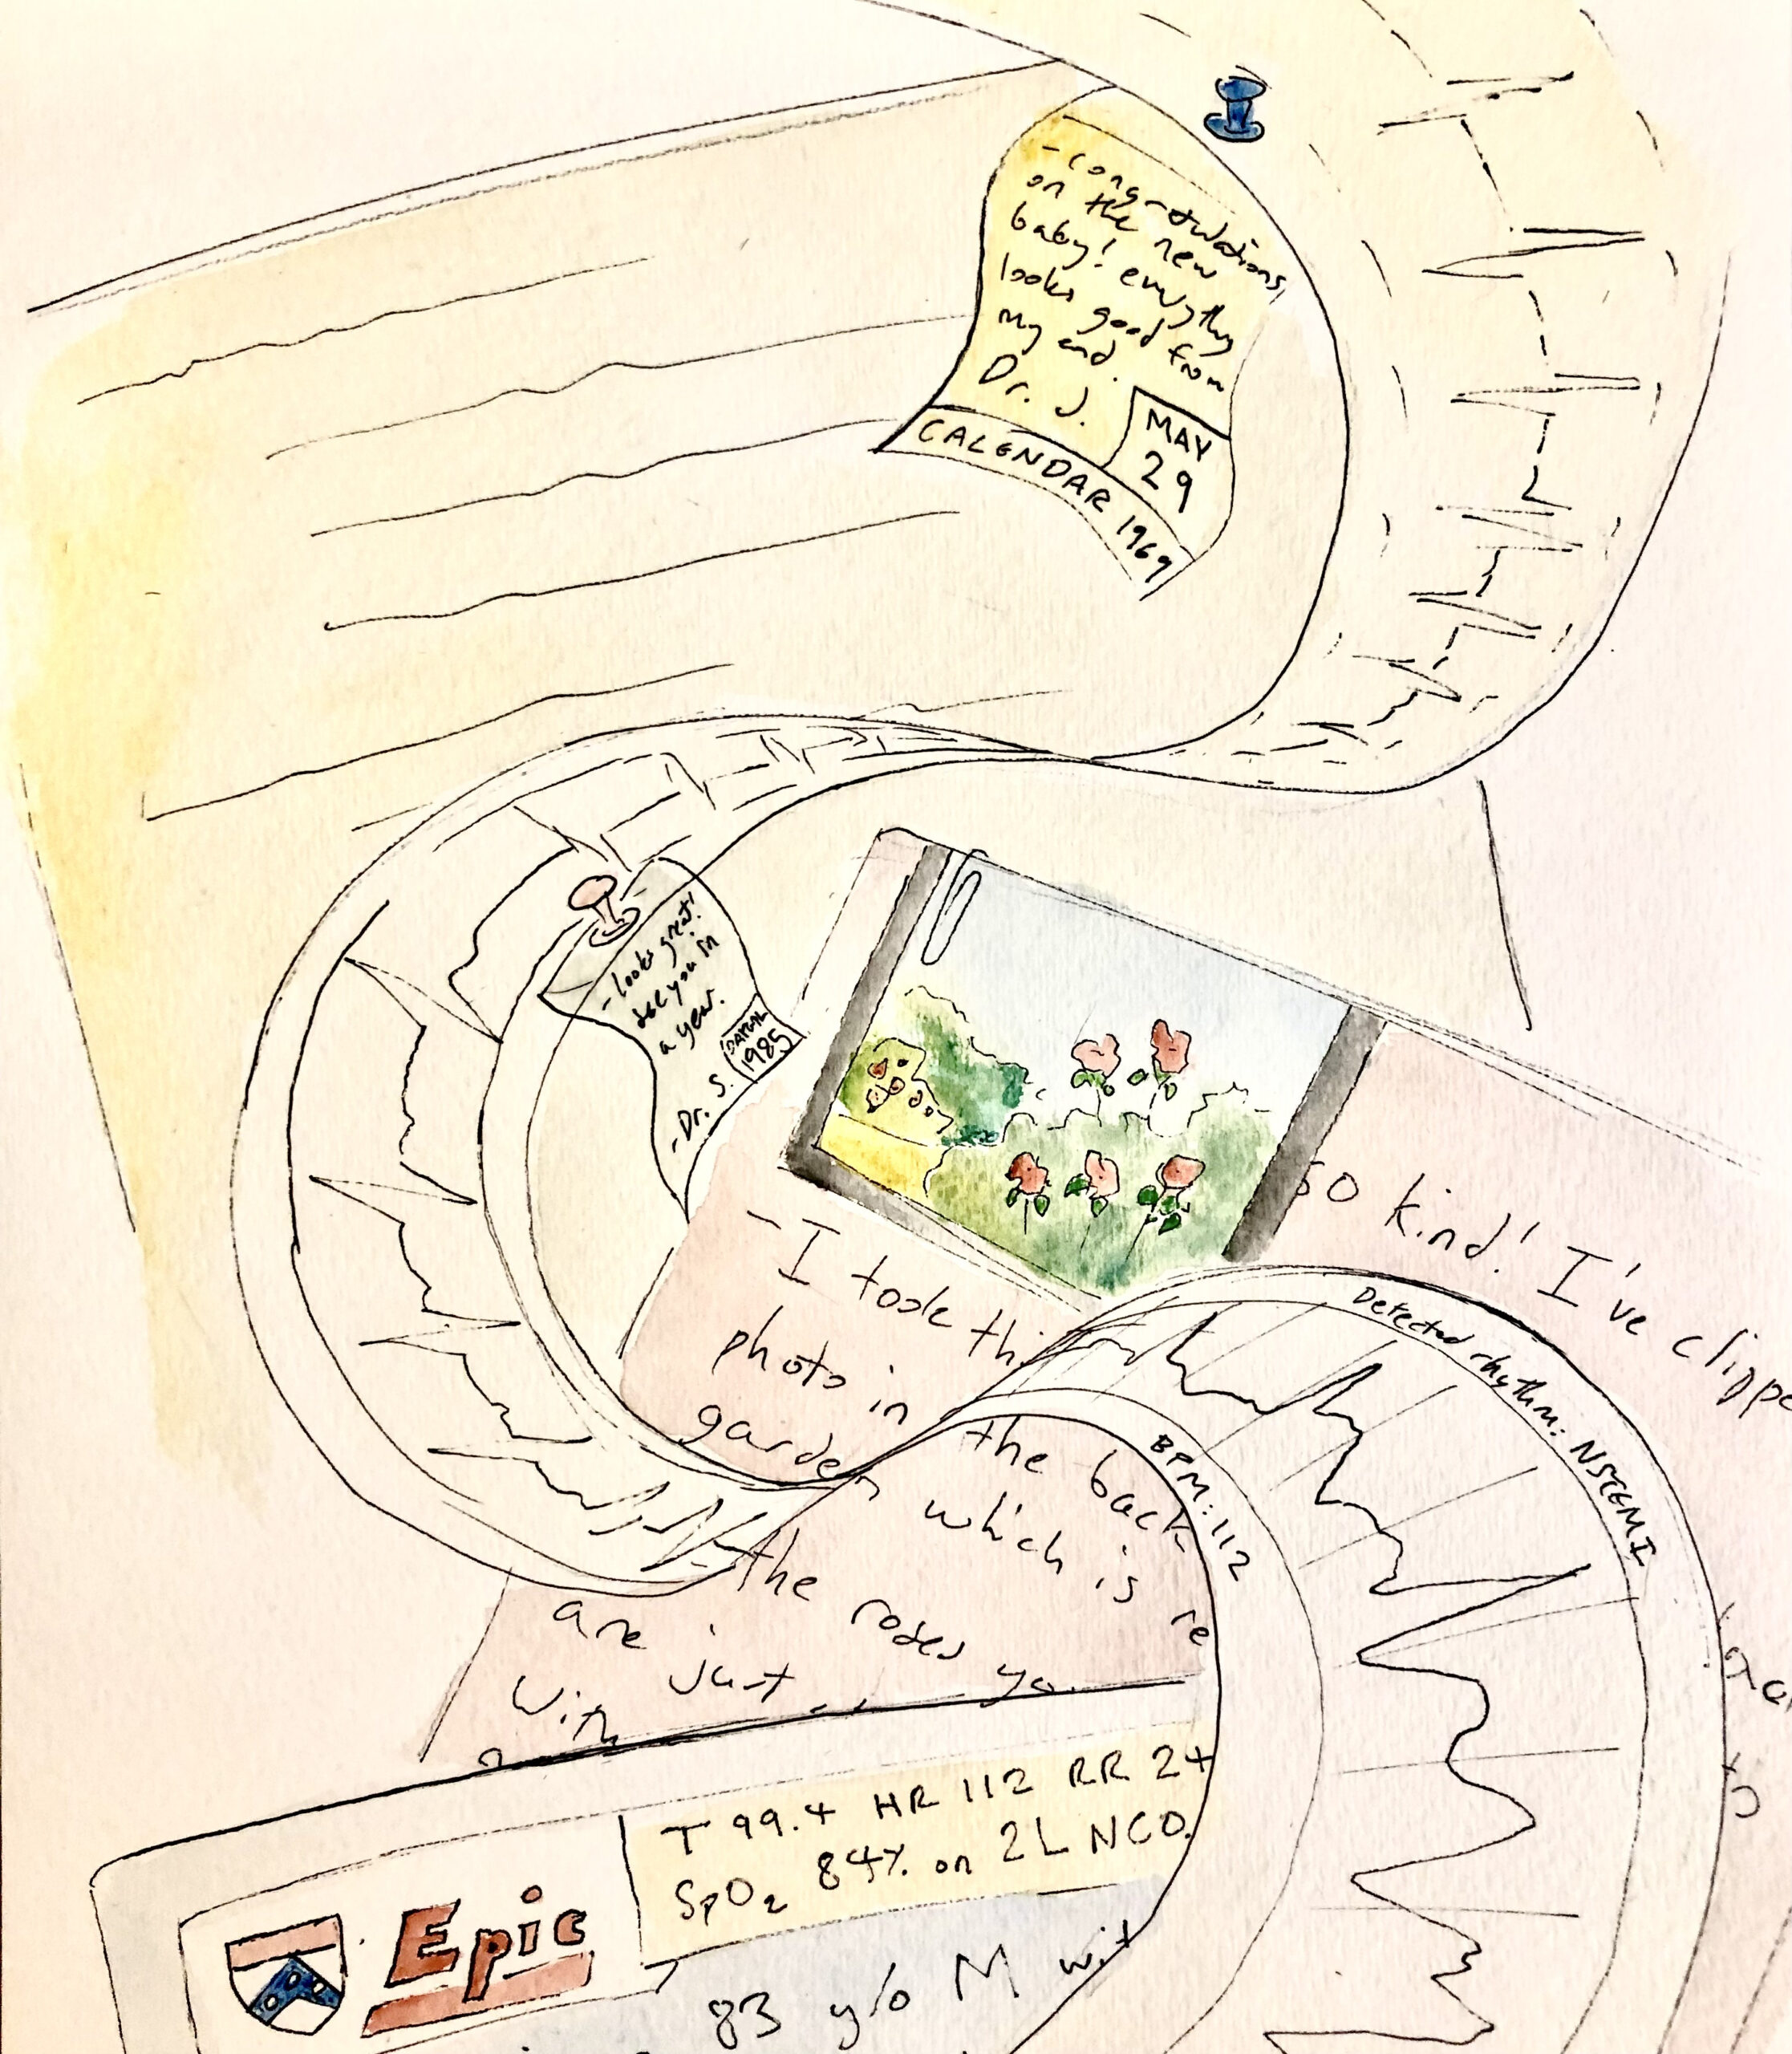 - congratulations
on the new
baby! everything
looks good from
my end.
Dr. J.
MAY
29
CALENDAR 1969
- looks great!
see you in
a year.
1985
- Dr. S.
so kind! I've clippe
- I took thi
photo in
garden the back
which is re
the roses yo
are just
with
Detected rhythm: NSTEMI
BPM: 112
T 99.4 HR 112 RR 24
SpO2 84% on 2L NCO.
Epic
83 y/o M wit